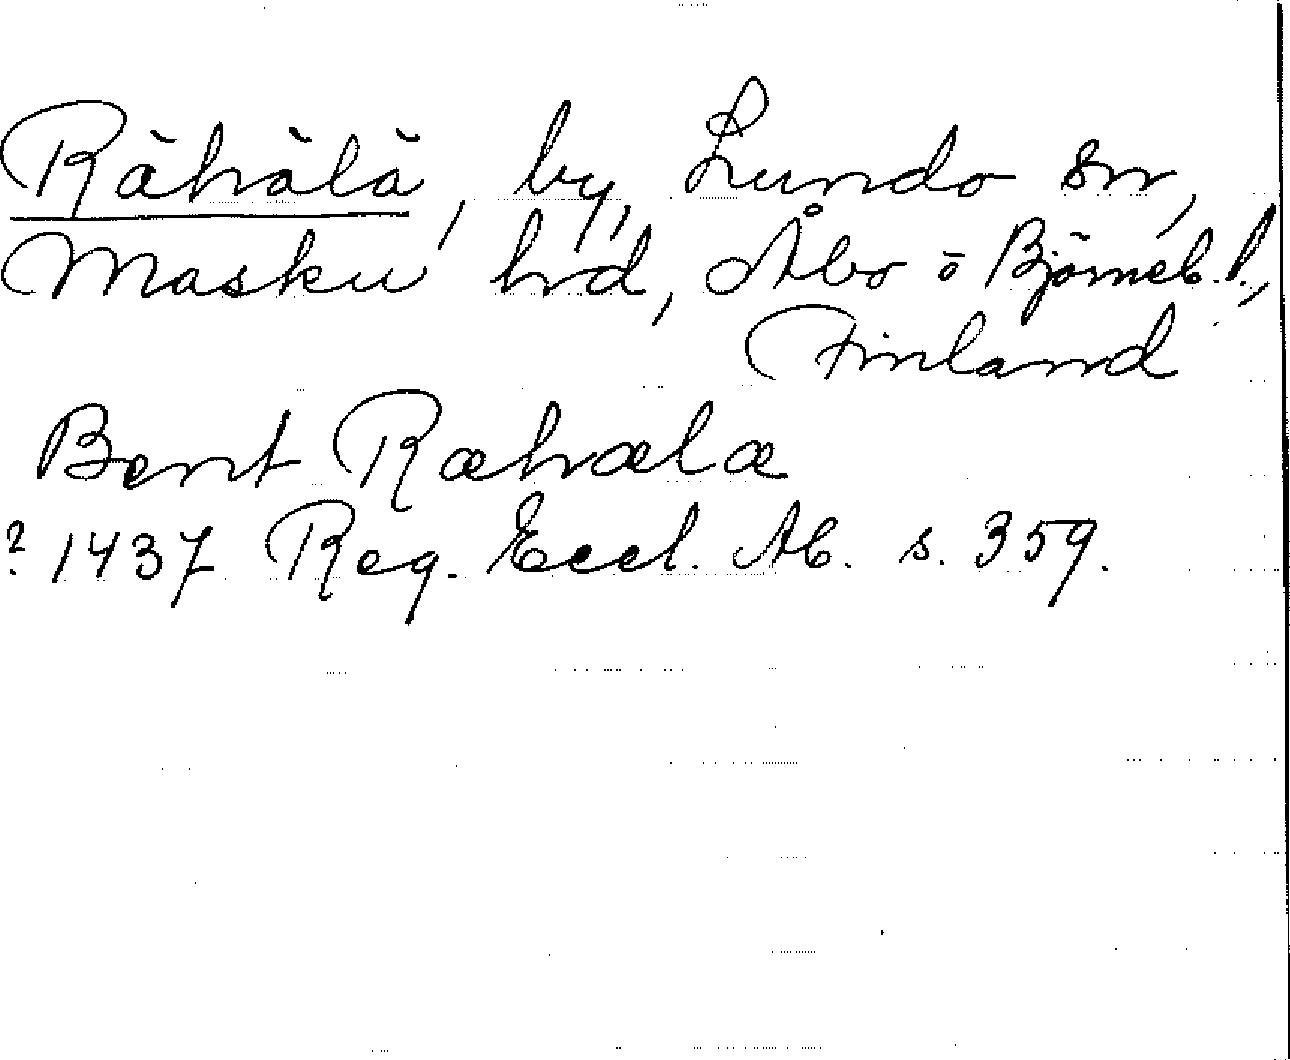 Rähälä, by, Lundo sn,
Masku hd, Åbo o Björneb. l.,
Finland
Bent Ræhælæ
? 1437 Reg. Eccl. Ab. s. 359.